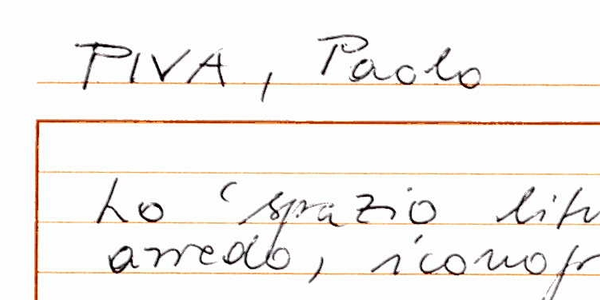 PIVA, Paolo
Lo 'spazio litu
arredo, iconogr